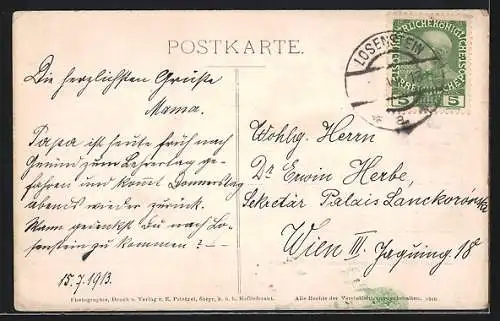 POSTKARTE.
LOSENSTEIN
5 5
Die herzlichsten Grüsse
Mama.
Papa ist heute früh nach
Gmünd zum Lehrertag ge-
fahren und kommt Donnerstag
abends wieder zurück.
Wann gedenkst Du nach Lo-
senstein zu kommen? –
15.7.1913.
Wohlg. Herrn
Dr Erwin Herbe,
Sekretär Palais Lanckoroński
Wien III. Jaquing. 18
Photographie, Druck u. Verlag v. E. Prietzel, Steyr, k. u. k. Hoflieferant.
Alle Rechte der Vervielfältigung vorbehalten. 1910